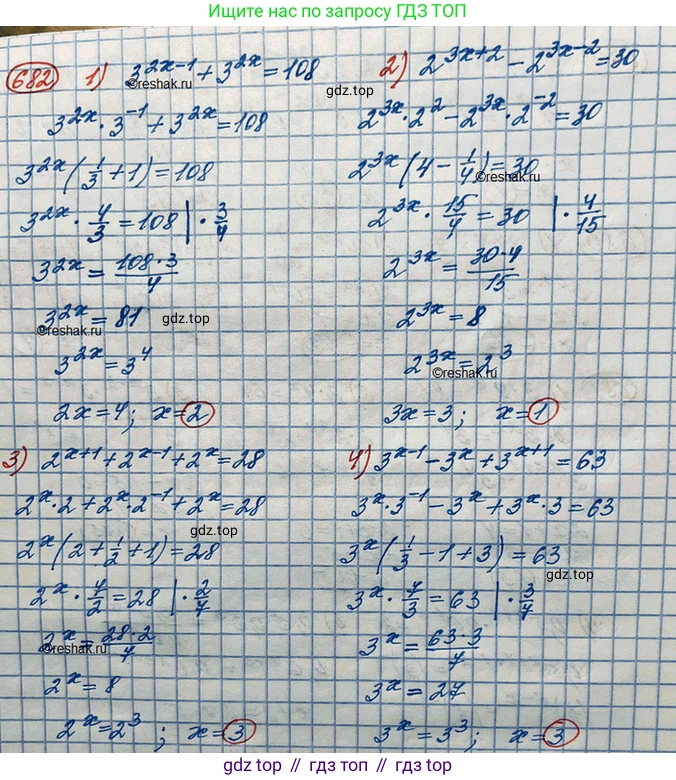 Ищите нас по запросу ГДЗ ТОП
682 1) 3^{2x-1} + 3^{2x} = 108
©reshak.ru
3^{2x} · 3^{-1} + 3^{2x} = 108
3^{2x} (1/3 + 1) = 108
3^{2x} · 4/3 = 108 | · 3/4
3^{2x} = 108·3/4
3^{2x} = 81
©reshak.ru
gdz.top
3^{2x} = 3^4
2x = 4; x = 2
2) 2^{3x+2} - 2^{3x-2} = 30
gdz.top
2^{3x} · 2^2 - 2^{3x} · 2^{-2} = 30
2^{3x} (4 - 1/4) = 30
©reshak.ru
2^{3x} · 15/4 = 30 | · 4/15
2^{3x} = 30·4/15
2^{3x} = 8
2^{3x} = 2^3
©reshak.ru
3x = 3; x = 1
3) 2^{x+1} + 2^{x-1} + 2^x = 28
2^x · 2 + 2^x · 2^{-1} + 2^x = 28
gdz.top
2^x (2 + 1/2 + 1) = 28
2^x · 7/2 = 28 | · 2/7
2^x = 28·2/7
©reshak.ru
2^x = 8
2^x = 2^3; x = 3
4) 3^{x-1} - 3^x + 3^{x+1} = 63
3^x · 3^{-1} - 3^x + 3^x · 3 = 63
3^x (1/3 - 1 + 3) = 63
gdz.top
3^x · 7/3 = 63 | · 3/7
3^x = 63·3/7
3^x = 27
3^x = 3^3; x = 3
gdz.top // гдз.топ // гдз.top